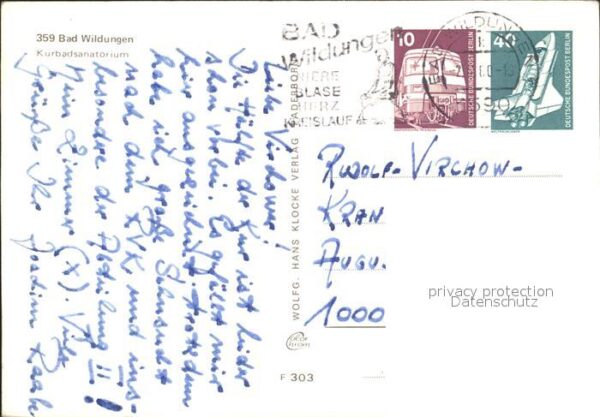 359 Bad Wildungen
Kurbadsanatorium
Liebe Virchower!
Die Hälfte der Kur ist leider
schon vorbei. Es gefällt mir
hier ausgezeichnet. Trotzdem
habe ich große Sehnsucht
nach dem RVK und ins-
besondere der Abteilung II!
Mein Zimmer (X). Viele
Grüße Ihr Joachim Raabe
WOLFG. HANS KLOCKE VERLAG PADERBORN
F 303
BAD
Wildungen
NIERE
BLASE
HERZ
KREISLAUF
BAD WILDUNGEN
3590
10
DEUTSCHE BUNDESPOST BERLIN
40
DEUTSCHE BUNDESPOST BERLIN
RUDOLF-VIRCHOW-
KRAN
AUGU
1000
privacy protection
Datenschutz